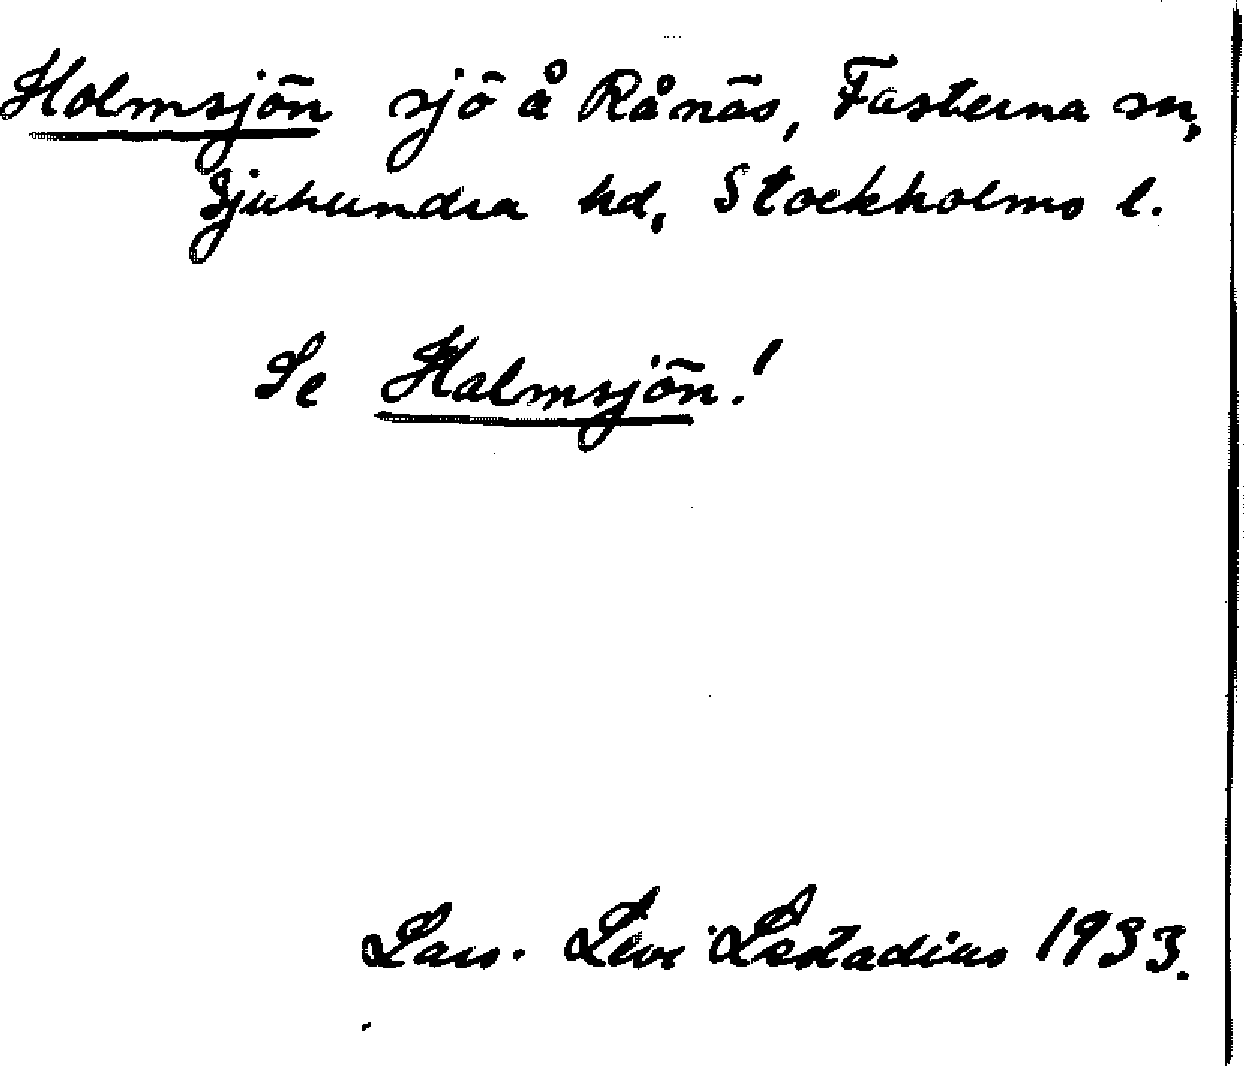 Holmsjön sjö å Rånäs, Fasterna sn,
Sjuhundra hd, Stockholms l.
Se Halmsjön!
Lars. Levi Læstadius 1933.